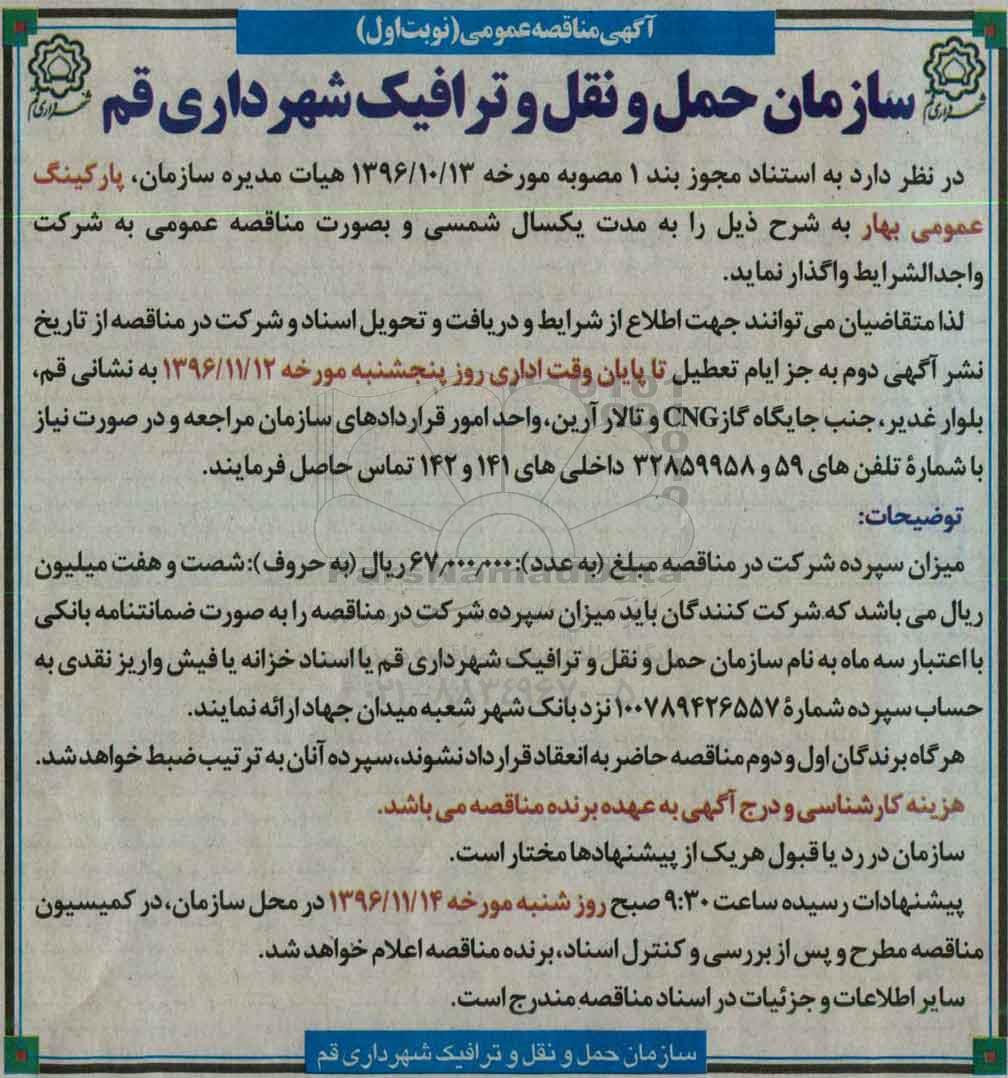 آگهی مناقصه عمومی (نوبت اول)
سازمان حمل و نقل و ترافیک شهرداری قم
در نظر دارد به استناد مجوز بند ۱ مصوبه مورخه ۱۳۹۶/۱۰/۱۳ هیات مدیره سازمان، پارکینگ
عمومی بهار به شرح ذیل را به مدت یکسال شمسی و بصورت مناقصه عمومی به شرکت
واجدالشرایط واگذار نماید.
لذا متقاضیان می توانند جهت اطلاع از شرایط و دریافت و تحویل اسناد و شرکت در مناقصه از تاریخ
نشر آگهی دوم به جز ایام تعطیل تا پایان وقت اداری روز پنجشنبه مورخه ۱۳۹۶/۱۱/۱۲ به نشانی قم،
بلوار غدیر، جنب جایگاه گاز CNG و تالار آرین، واحد امور قراردادهای سازمان مراجعه و در صورت نیاز
با شمارهٔ تلفن های ۵۹ و ۳۲۸۵۹۹۵۸ داخلی های ۱۴۱ و ۱۴۲ تماس حاصل فرمایند.
توضیحات:
میزان سپرده شرکت در مناقصه مبلغ (به عدد): ۶۷٫۰۰۰٫۰۰۰ ریال (به حروف): شصت و هفت میلیون
ریال می باشد که شرکت کنندگان باید میزان سپرده شرکت در مناقصه را به صورت ضمانتنامه بانکی
با اعتبار سه ماه به نام سازمان حمل و نقل و ترافیک شهرداری قم یا اسناد خزانه یا فیش واریز نقدی به
حساب سپرده شمارهٔ ۱۰۰۷۸۹۴۲۶۵۵۷ نزد بانک شهر شعبه میدان جهاد ارائه نمایند.
هرگاه برندگان اول و دوم مناقصه حاضر به انعقاد قرارداد نشوند، سپرده آنان به ترتیب ضبط خواهد شد.
هزینه کارشناسی و درج آگهی به عهده برنده مناقصه می باشد.
سازمان در رد یا قبول هر یک از پیشنهادها مختار است.
پیشنهادات رسیده ساعت ۹:۳۰ صبح روز شنبه مورخه ۱۳۹۶/۱۱/۱۴ در محل سازمان، در کمیسیون
مناقصه مطرح و پس از بررسی و کنترل اسناد، برنده مناقصه اعلام خواهد شد.
سایر اطلاعات و جزئیات در اسناد مناقصه مندرج است.
سازمان حمل و نقل و ترافیک شهرداری قم